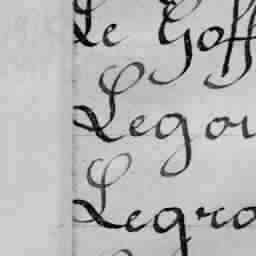 Le Goff
Legou
Legro